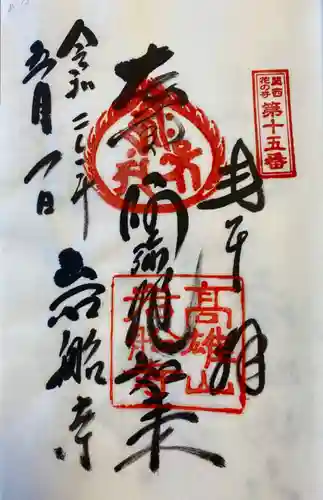 関西
花の寺
第十五番
奉拝
本尊
阿弥陀如来
高雄山
岩船寺
令和元年
五月一日
岩船寺